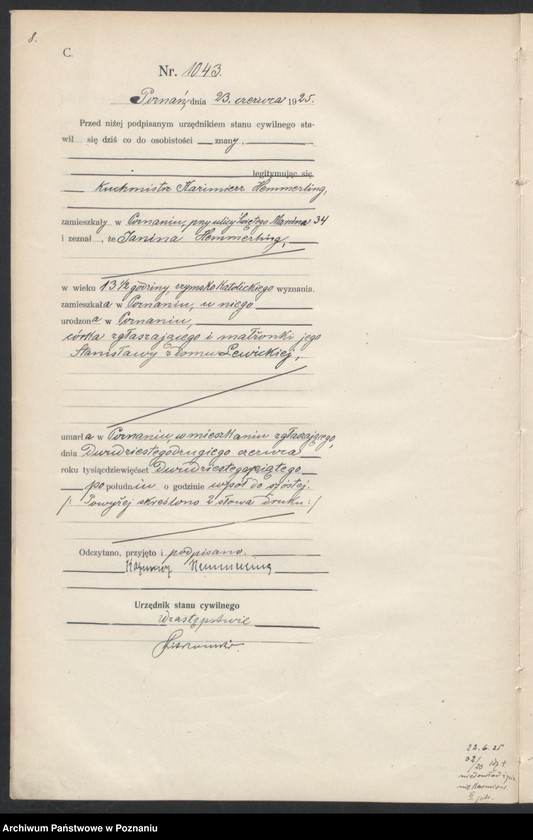 8.
C.
Nr. 1043.
Poznań, dnia 23. czerwca 1925.
Przed niżej podpisanym urzędnikiem stanu cywilnego sta-
wił się dziś co do osobistości znany,
legitymując się
Kuchmistrz Kazimierz Hemmerling,
zamieszkały w Poznaniu, przy ulicy Świętego Marcina 34
i zeznał, że Janina Hemmerling,
w wieku 13 1/2 godziny, rzymsko katolickiego wyznania.
zamieszkała w Poznaniu, u niego
urodzona w Poznaniu,
córka zgłaszającego i małżonki jego
Stanisławy z domu Lewickiej,
umarła w Poznaniu, w mieszkaniu zgłaszającego,
dnia Dwudziestegodrugiego czerwca
roku tysiącdziewięćset Dwudziestegopiątego
po południu o godzinie wpół do szóstej.
/: Powyżej skreślono 2 słowa druku :/
Odczytano, przyjęto i podpisano.
Kazimierz Hemmerling
Urzędnik stanu cywilnego
W zastępstwie
22. 6. 25